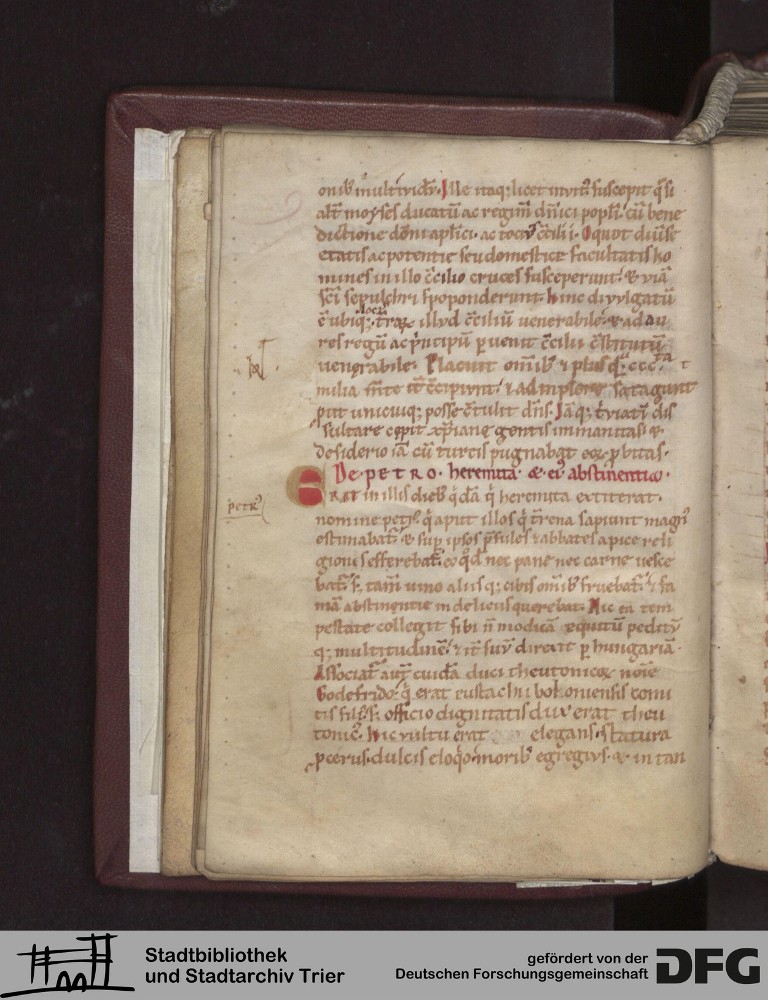 onib; in ultimid; Ille itaq; licet invit' suscepit q̄si
alt' moyses ducatū ac regim̄ dn̄ici popl̄i. cū bene
dictione dom̄i apl̄ici. ac toci' c̄cilii. O quot diūse
etatis ac potentie seu domestice facultatis ho
mines in illo c̄cilio cruces susceperunt. & viā
sc̄i sepulchri spoponderunt. hinc divvlgatū
ē ubiq; illvd c̄ciliū venerabile. & ad au
res regū ac p̄ncipū p̄venit c̄cilii c̄stitutū
venerabile. Placuit om̄ib; & plus q̄ ccc
milia m̄te it' c̄cipivnt. & adimplere satagunt
put unicuiq; posse c̄tulit dn̄s. Iā q; 
sultare cepit xp̄iane gentis immanitas. &
desiderio iā cū turcis pugnabat eoꝝ p̄bitas.
De PETRO. heremita. & ei' abstinentia.
ERAT in illis dieb; q̄dā q̄ heremita extiterat.
petr'
nomine petr'. q̄ aput illos q̄ t̄rena sapiunt magn'
estimabat'. & sup ipsos p̄sules & abbates apice reli
gionis efferebat'. eo q̄d nec pane nec carne vesce
bat'. s; tam̄ vino aliisq; cibis om̄ib; fruebat'. & fa
mā abstinentie in deliciis querebat. Hic eā tem
pestate collegit sibi n̄ modicā equitū peditū
q; multitudinē. & it' suv̄ direxit p̄ hungariā.
Associat' aut̄ cuidā duci theutonicoꝝ noīe
Godefrido. q̄ erat eustachii boloniensis comi
tis fili'. s; officio dignitatis dux erat theu
tonic'. Hic vultu erat elegans. statura
pcerus. dulcis eloq̄o. morib; egregivs. & in tan
Stadtbibliothek
und Stadtarchiv Trier
gefördert von der
Deutschen Forschungsgemeinschaft
DFG